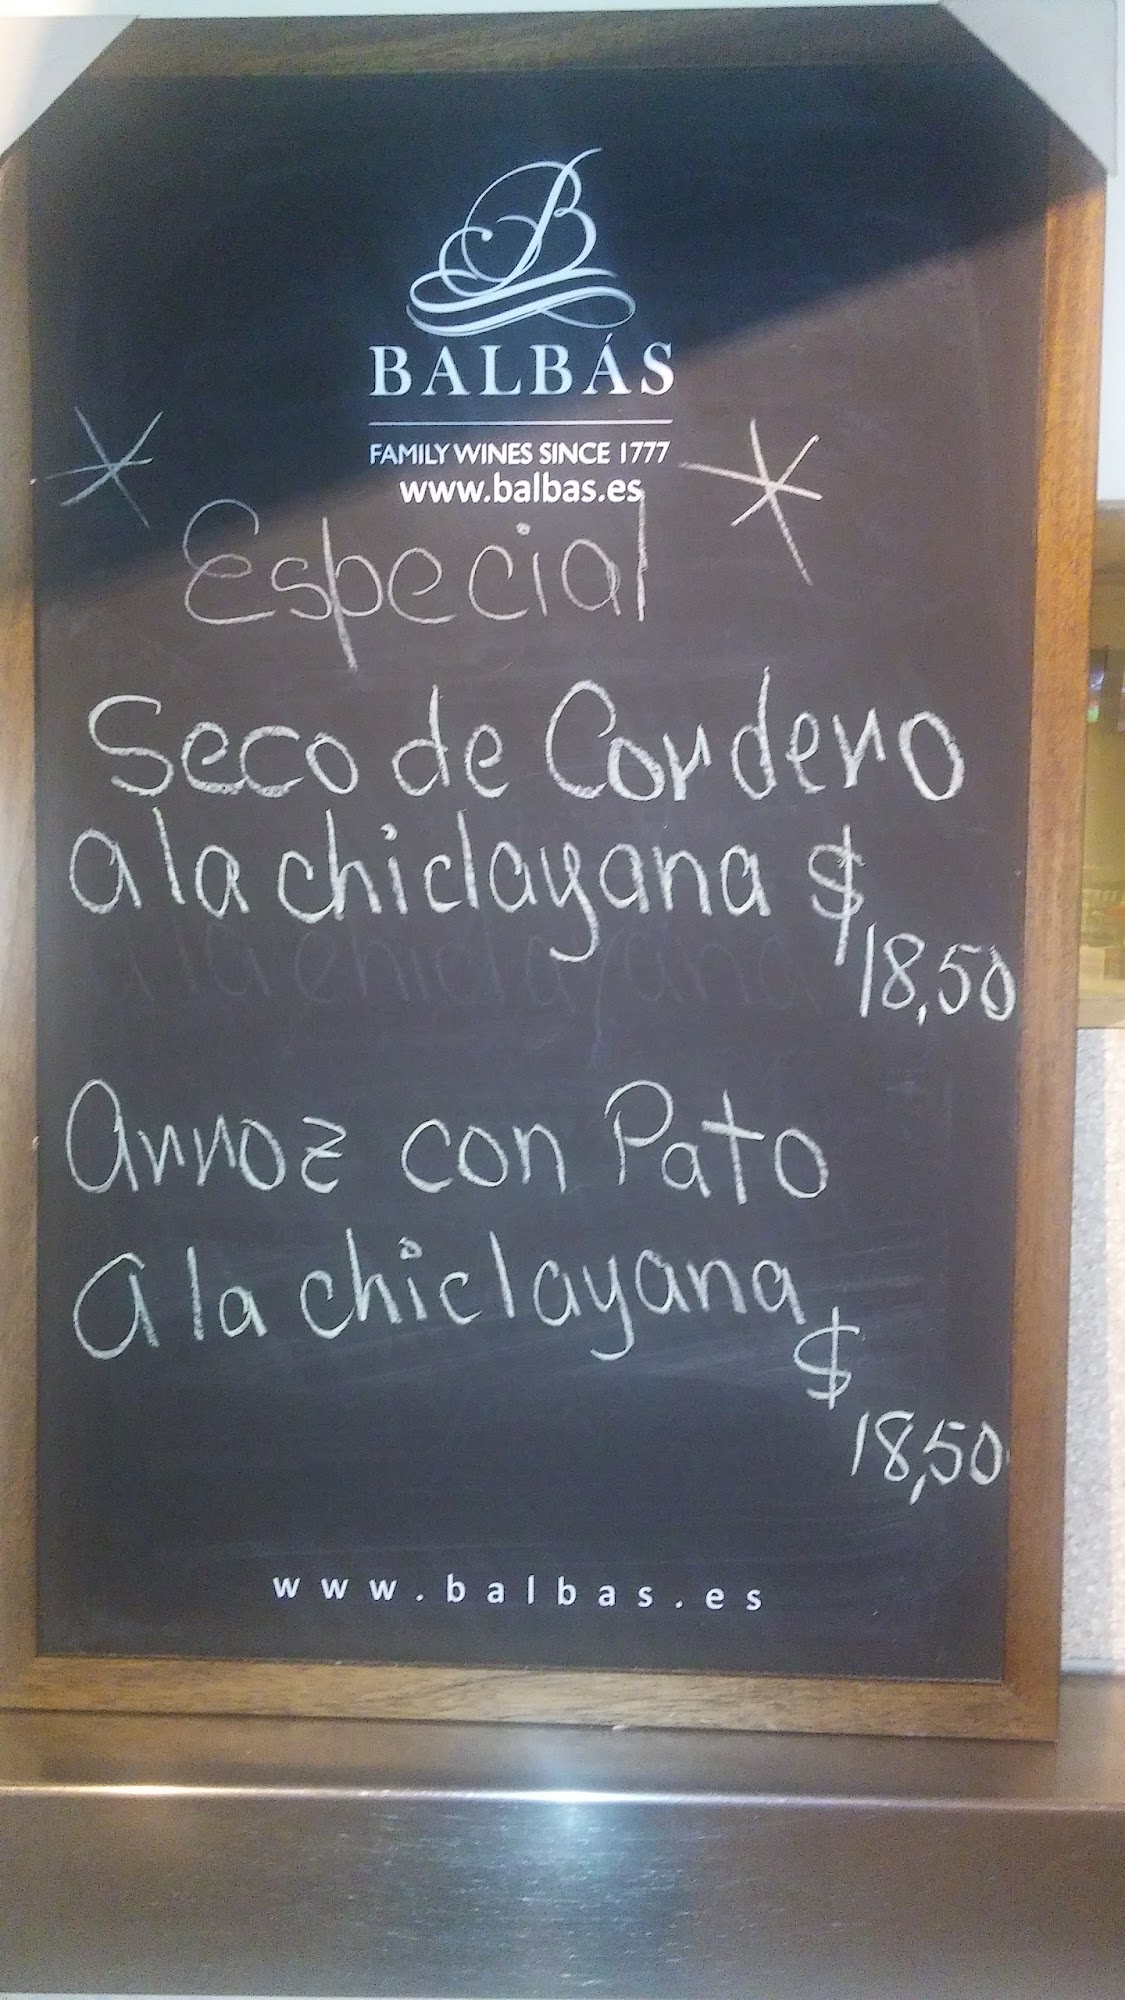 B
BALBÁS
FAMILY WINES SINCE 1777
www.balbas.es
Especial
Seco de Cordero
a la chiclayana $
18,50
a la chiclayana
Arroz con Pato
a la chiclayana
$
18,50
www.balbas.es